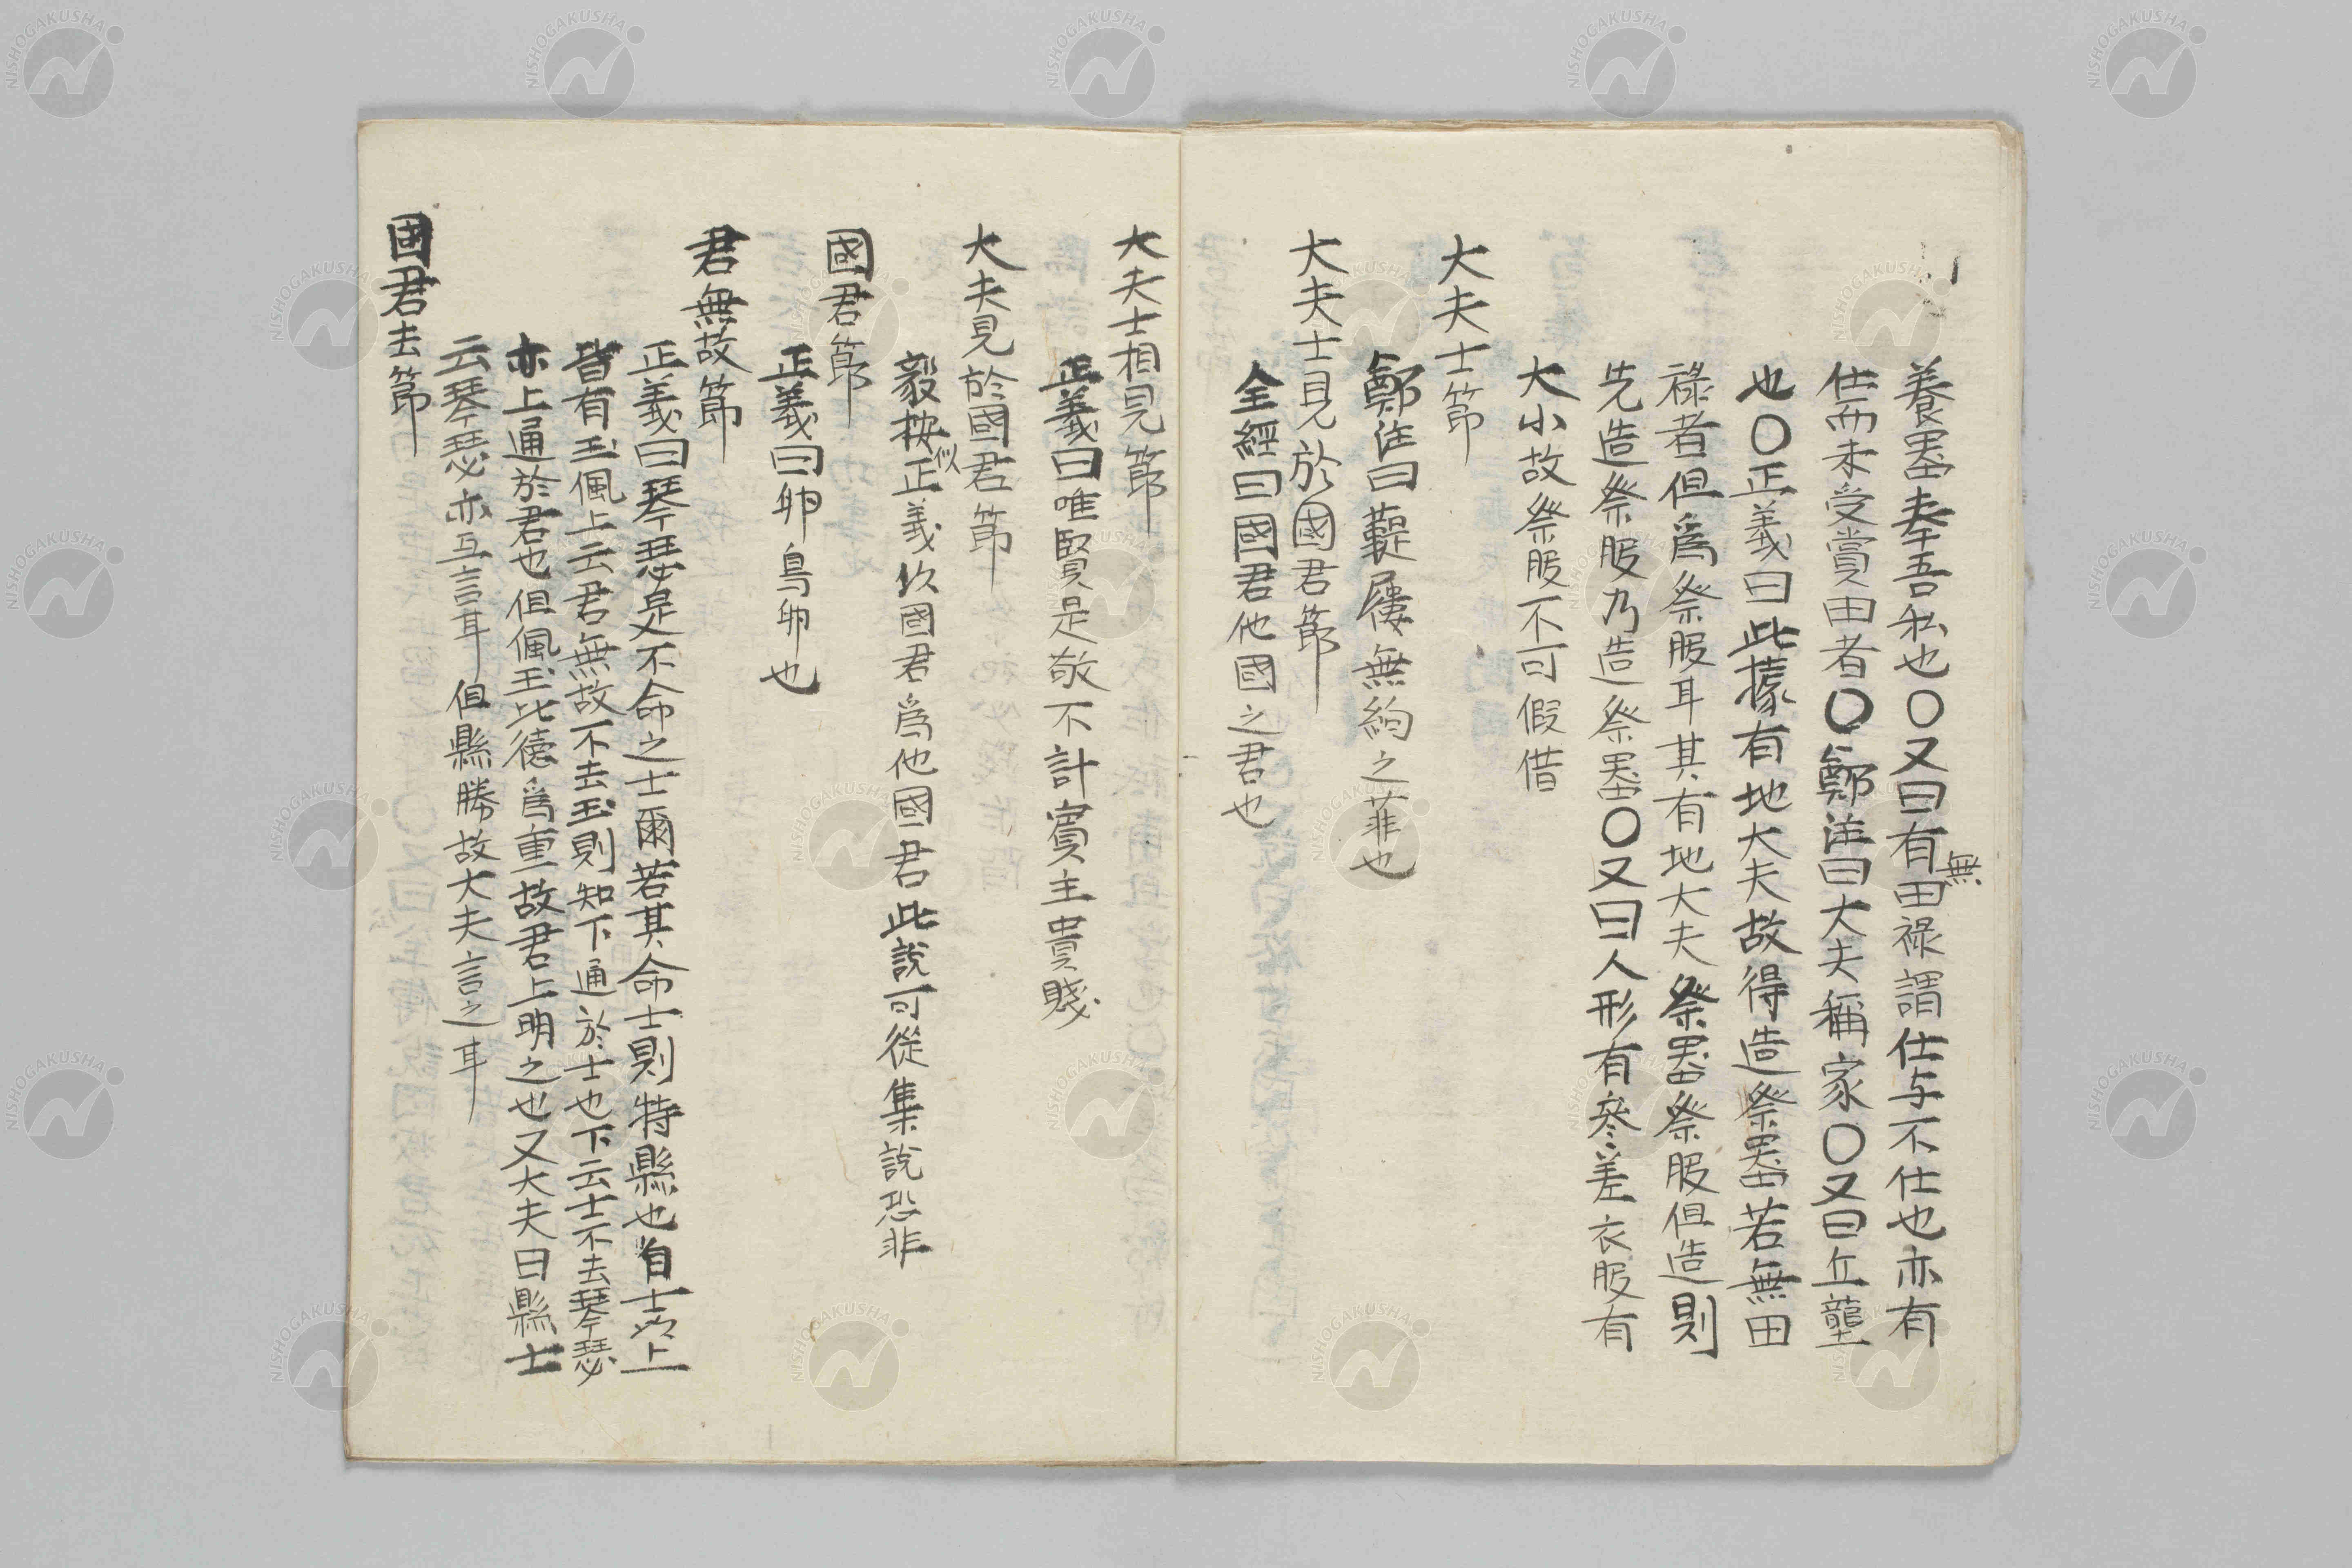 養器奉吾私也〇又曰有田祿謂仕与不仕也亦有
無
仕而未受賞田者〇鄭注曰大夫稱家〇又曰丘壟
也〇正義曰此據有地大夫故得造祭器若無田
祿者但爲祭服耳其有地大夫祭器祭服但造則
先造祭服乃造祭器〇又曰人形有參差衣服有
大小故祭服不可假借
大夫士節
鄭注曰鞮屨無絇之菲也
大夫士見於國君節
全經曰國君他國之君也
大夫士相見節
正義曰唯賢是敬不計賓主貴賤
大夫見於國君節
毅按正義以國君爲他國君此說可從集說恐非
似
國君節
正義曰卵鳥卵也
君無故節
正義曰琴瑟是不命之士爾若其命士則特縣也自士以上
皆有玉佩上云君無故不去玉則知下通於士也下云士不去琴瑟
亦上通於君也但佩玉比德爲重故君上明之也又大夫曰縣士
云琴瑟亦互言耳但縣勝故大夫言之耳
國君去節
NISHOGAKUSHA